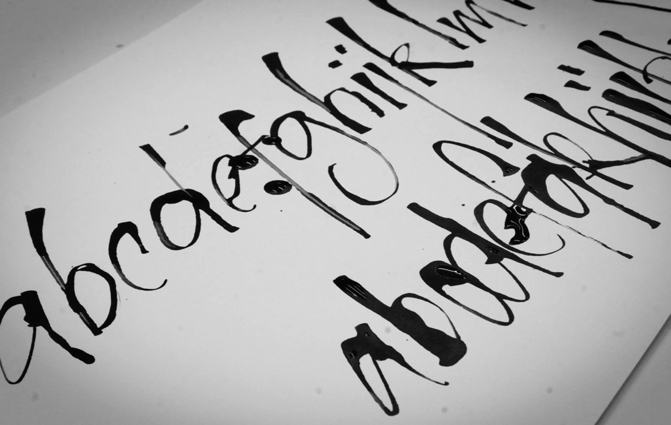 abcdefghijklm
abcdefghijkl